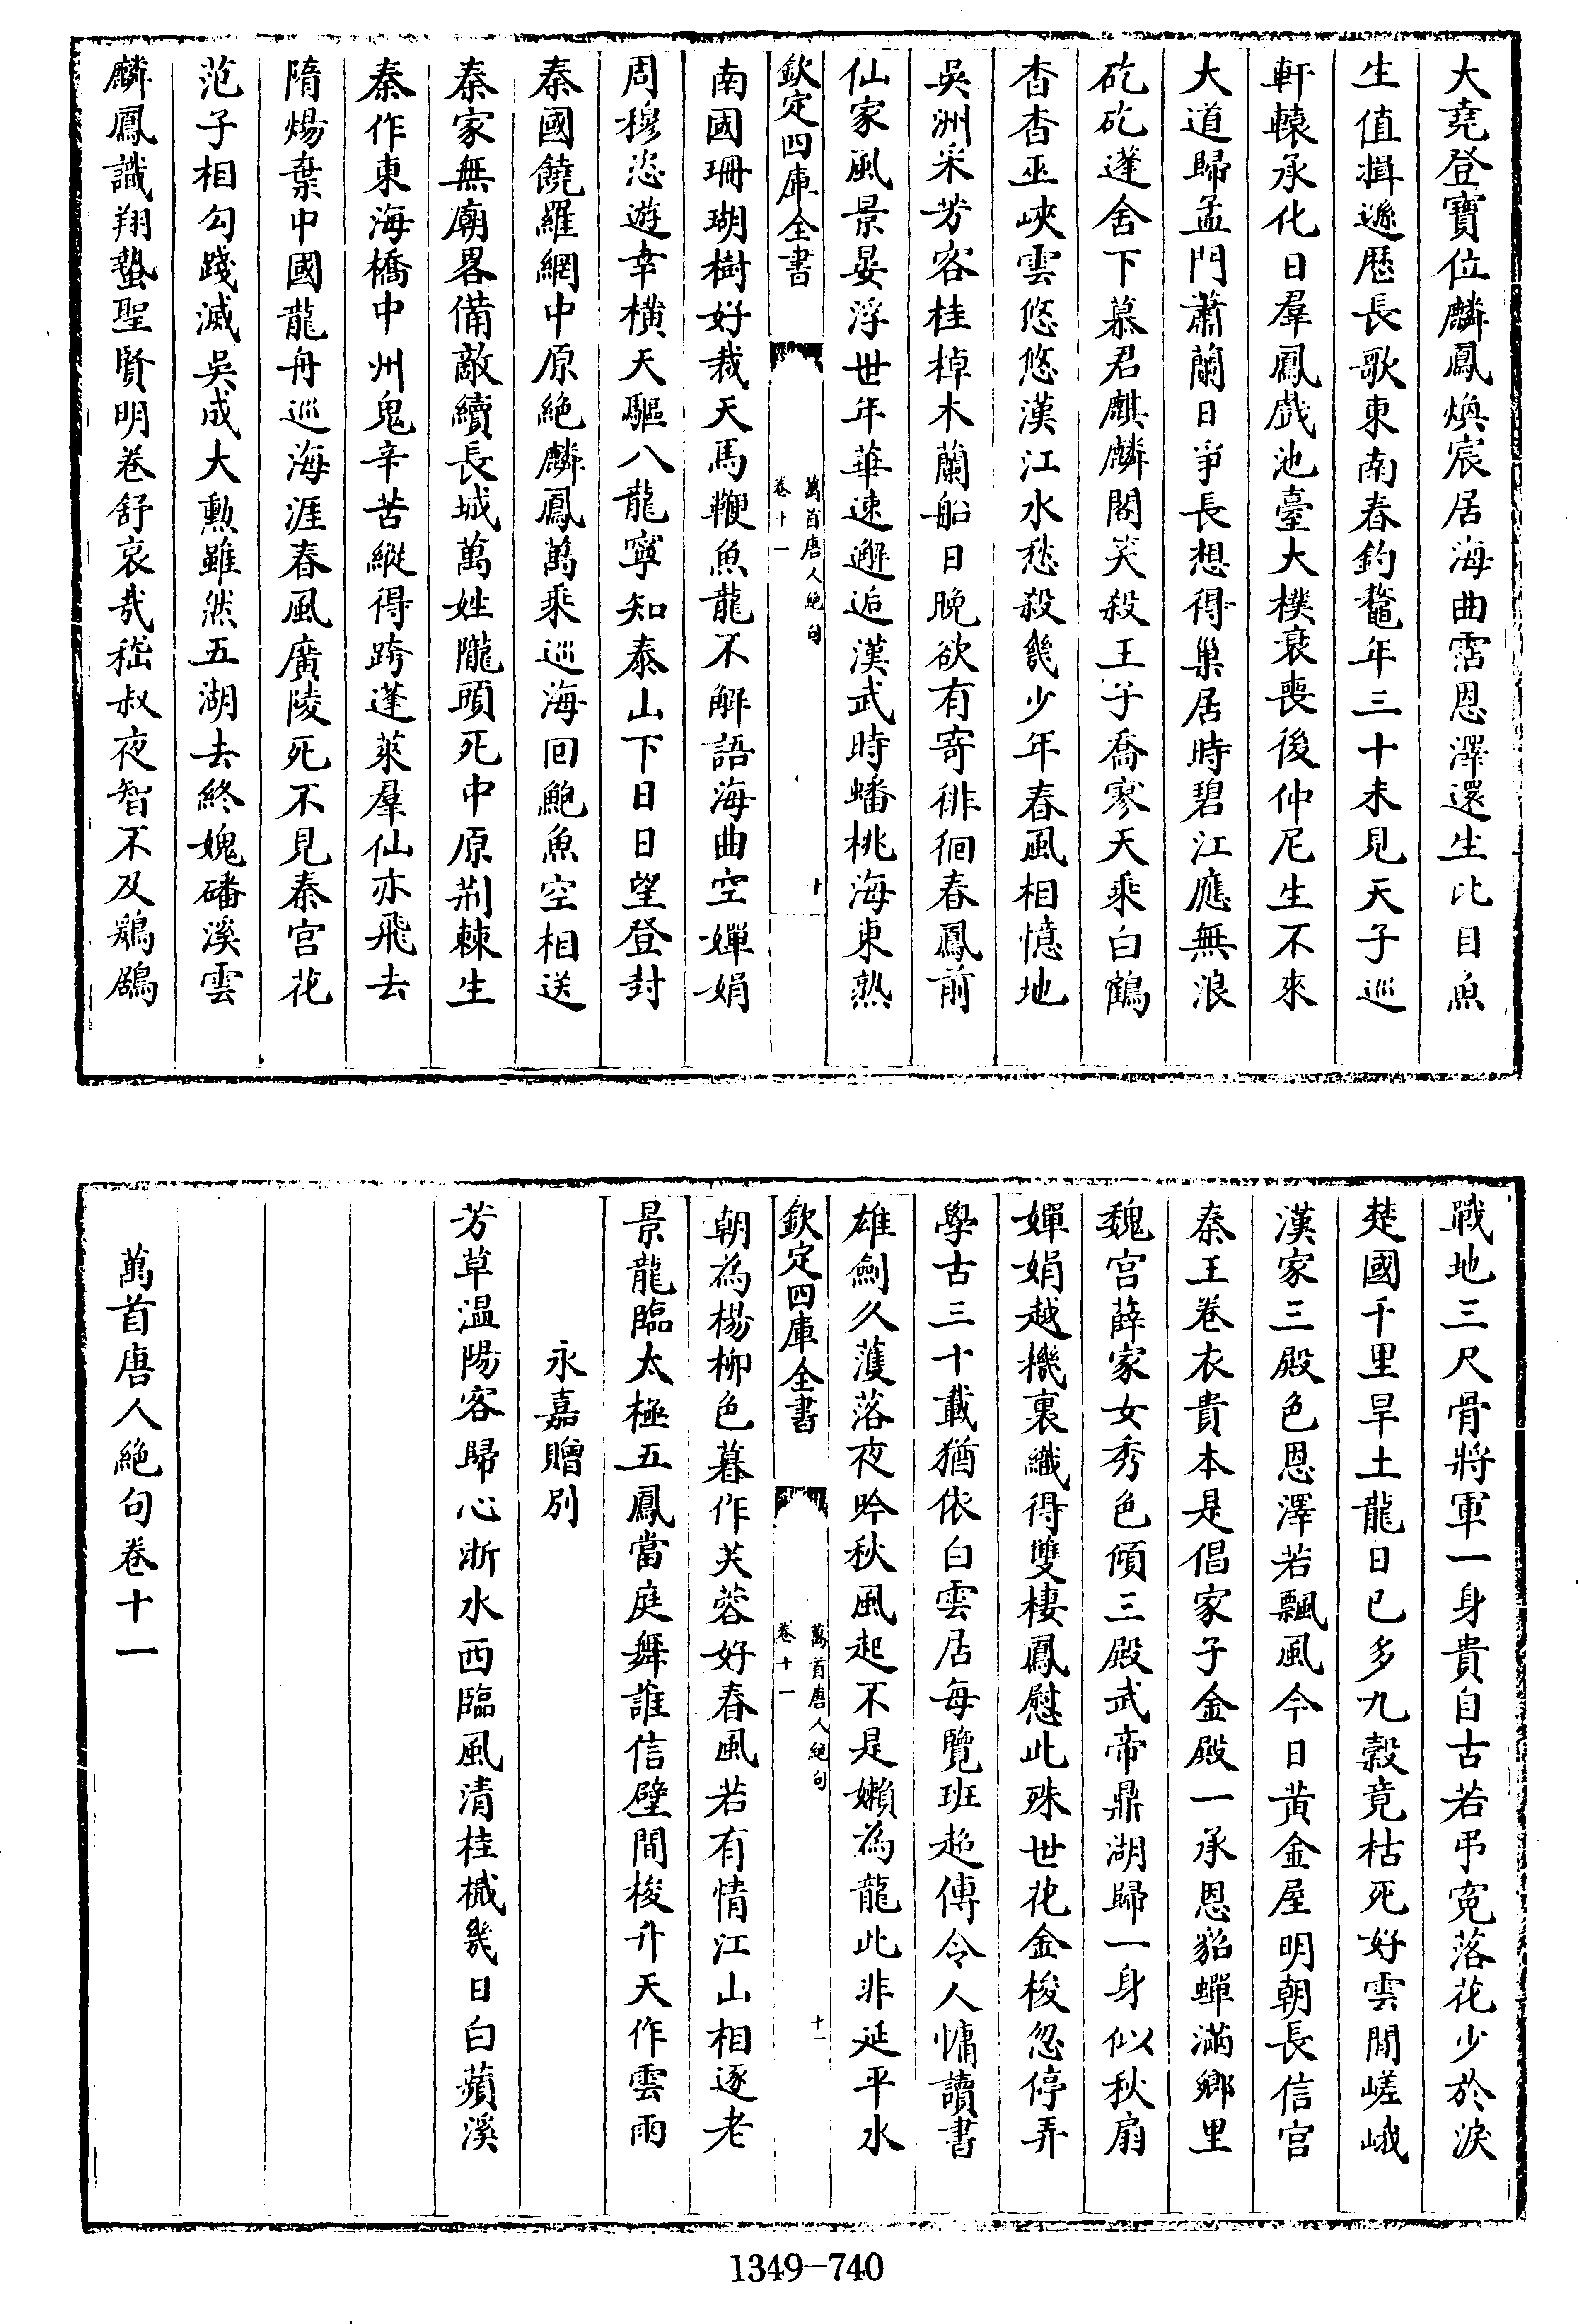 大堯登寶位麟鳳煥宸居海曲霑恩澤還生比目魚
生值揖遜歷長歌東南春釣鼇年三十未見天子巡
軒轅承化日羣鳳戲池臺大樸衰喪後仲尼生不來
大道歸孟門蕭蘭日爭長想得巢居時碧江應無浪
矻矻蓬舍下慕君麒麟閣笑殺王子喬寥天乘白鶴
杳杳巫峽雲悠悠漢江水愁殺幾少年春風相憶地
吳洲采芳客桂棹木蘭船日晚欲有寄徘徊春鳳前
仙家風景晏浮世年華速邂逅漢武時蟠桃海東熟
欽定四庫全書
萬首唐人絕句
卷十一
十
南國珊瑚樹好裁天馬鞭魚龍不解語海曲空嬋娟
周穆恣遊幸橫天驅八龍寧知泰山下日日望登封
秦國饒羅網中原絕麟鳳萬乘巡海回鮑魚空相送
秦家無廟畧備敵續長城萬姓隴頭死中原荆棘生
秦作東海橋中州鬼辛苦縱得跨蓬萊羣仙亦飛去
隋煬棄中國龍舟巡海涯春風廣陵死不見秦宮花
范子相勾踐滅吳成大勲雖然五湖去終媿磻溪雲
麟鳳識翔蟄聖賢明卷舒哀哉嵇叔夜智不及鶢鶋
戰地三尺骨將軍一身貴自古若弔寃落花少於淚
楚國千里旱土龍日已多九穀竟枯死好雲閒嵯峨
漢家三殿色恩澤若飄風今日黃金屋明朝長信宫
秦王卷衣貴本是倡家子金殿一承恩貂蟬滿鄉里
魏宫薛家女秀色傾三殿武帝鼎湖歸一身似秋扇
嬋娟越機裏織得雙棲鳳慰此殊世花金梭忽停弄
學古三十載猶依白雲居每覽班超傳令人慵讀書
雄劍久濩落夜吟秋風起不是嬾為龍此非延平水
欽定四庫全書
萬首唐人絕句
卷十一
十一
朝為楊柳色暮作芙蓉好春風若有情江山相逐老
景龍臨太極五鳳當庭舞誰信壁間梭升天作雲雨
永嘉贈别
芳草溫陽客歸心浙水西臨風清桂檝幾日白蘋溪
萬首唐人絕句卷十一
1349-740